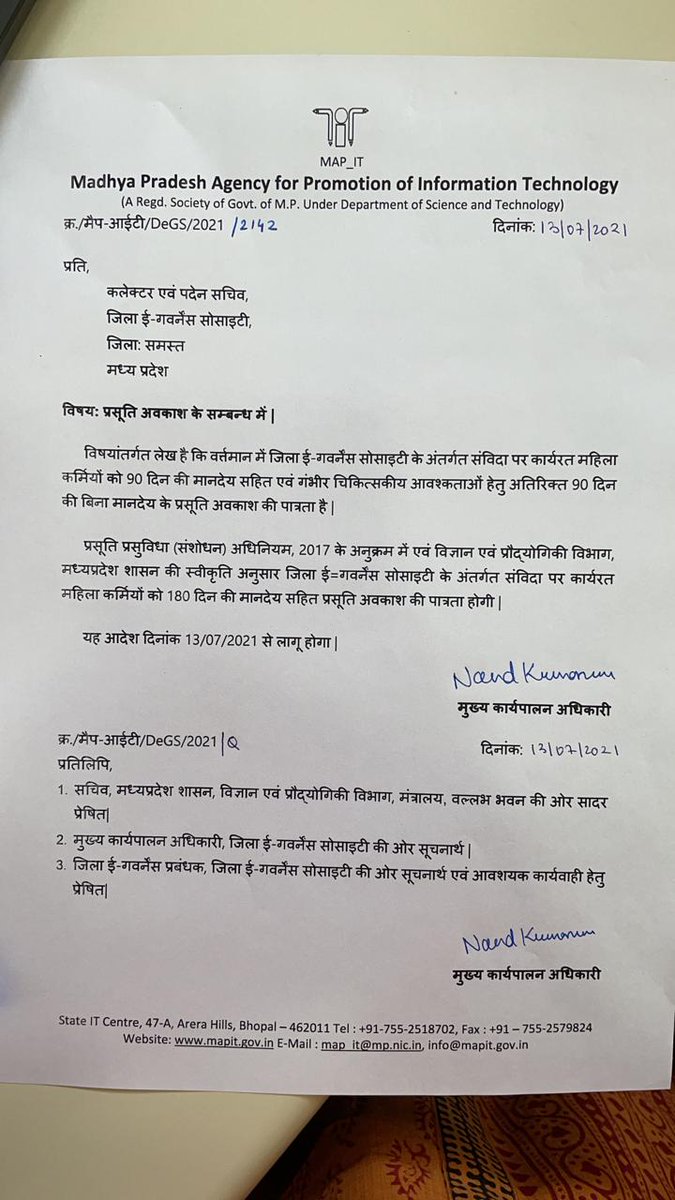 MAP_IT
Madhya Pradesh Agency for Promotion of Information Technology
(A Regd. Society of Govt. of M.P. Under Department of Science and Technology)
क्र./मैप-आईटी/DeGS/2021 /2142 दिनांक: 13/07/2021
प्रति,
कलेक्टर एवं पदेन सचिव,
जिला ई-गवर्नेंस सोसाइटी,
जिला: समस्त
मध्य प्रदेश
विषय: प्रसूति अवकाश के सम्बन्ध में|
विषयांतर्गत लेख है कि वर्त्तमान में जिला ई-गवर्नेंस सोसाइटी के अंतर्गत संविदा पर कार्यरत महिला
कर्मियों को 90 दिन की मानदेय सहित एवं गंभीर चिकित्सकीय आवश्कताओं हेतु अतिरिक्त 90 दिन
की बिना मानदेय के प्रसूति अवकाश की पात्रता है|
प्रसूति प्रसुविधा (संशोधन) अधिनियम, 2017 के अनुक्रम में एवं विज्ञान एवं प्रौद्योगिकी विभाग,
मध्यप्रदेश शासन की स्वीकृति अनुसार जिला ई=गवर्नेंस सोसाइटी के अंतर्गत संविदा पर कार्यरत
महिला कर्मियों को 180 दिन की मानदेय सहित प्रसूति अवकाश की पात्रता होगी|
यह आदेश दिनांक 13/07/2021 से लागू होगा|
Nand Kumarum
मुख्य कार्यपालन अधिकारी
क्र./मैप-आईटी/DeGS/2021/Q दिनांक: 13/07/2021
प्रतिलिपि,
1. सचिव, मध्यप्रदेश शासन, विज्ञान एवं प्रौद्योगिकी विभाग, मंत्रालय, वल्लभ भवन की ओर सादर
प्रेषित|
2. मुख्य कार्यपालन अधिकारी, जिला ई-गवर्नेंस सोसाइटी की ओर सूचनार्थ|
3. जिला ई-गवर्नेंस प्रबंधक, जिला ई-गवर्नेंस सोसाइटी की ओर सूचनार्थ एवं आवशयक कार्यवाही हेतु
प्रेषित|
Nand Kumarum
मुख्य कार्यपालन अधिकारी
State IT Centre, 47-A, Arera Hills, Bhopal – 462011 Tel : +91-755-2518702, Fax : +91 – 755-2579824
Website: www.mapit.gov.in E-Mail : map_it@mp.nic.in, info@mapit.gov.in